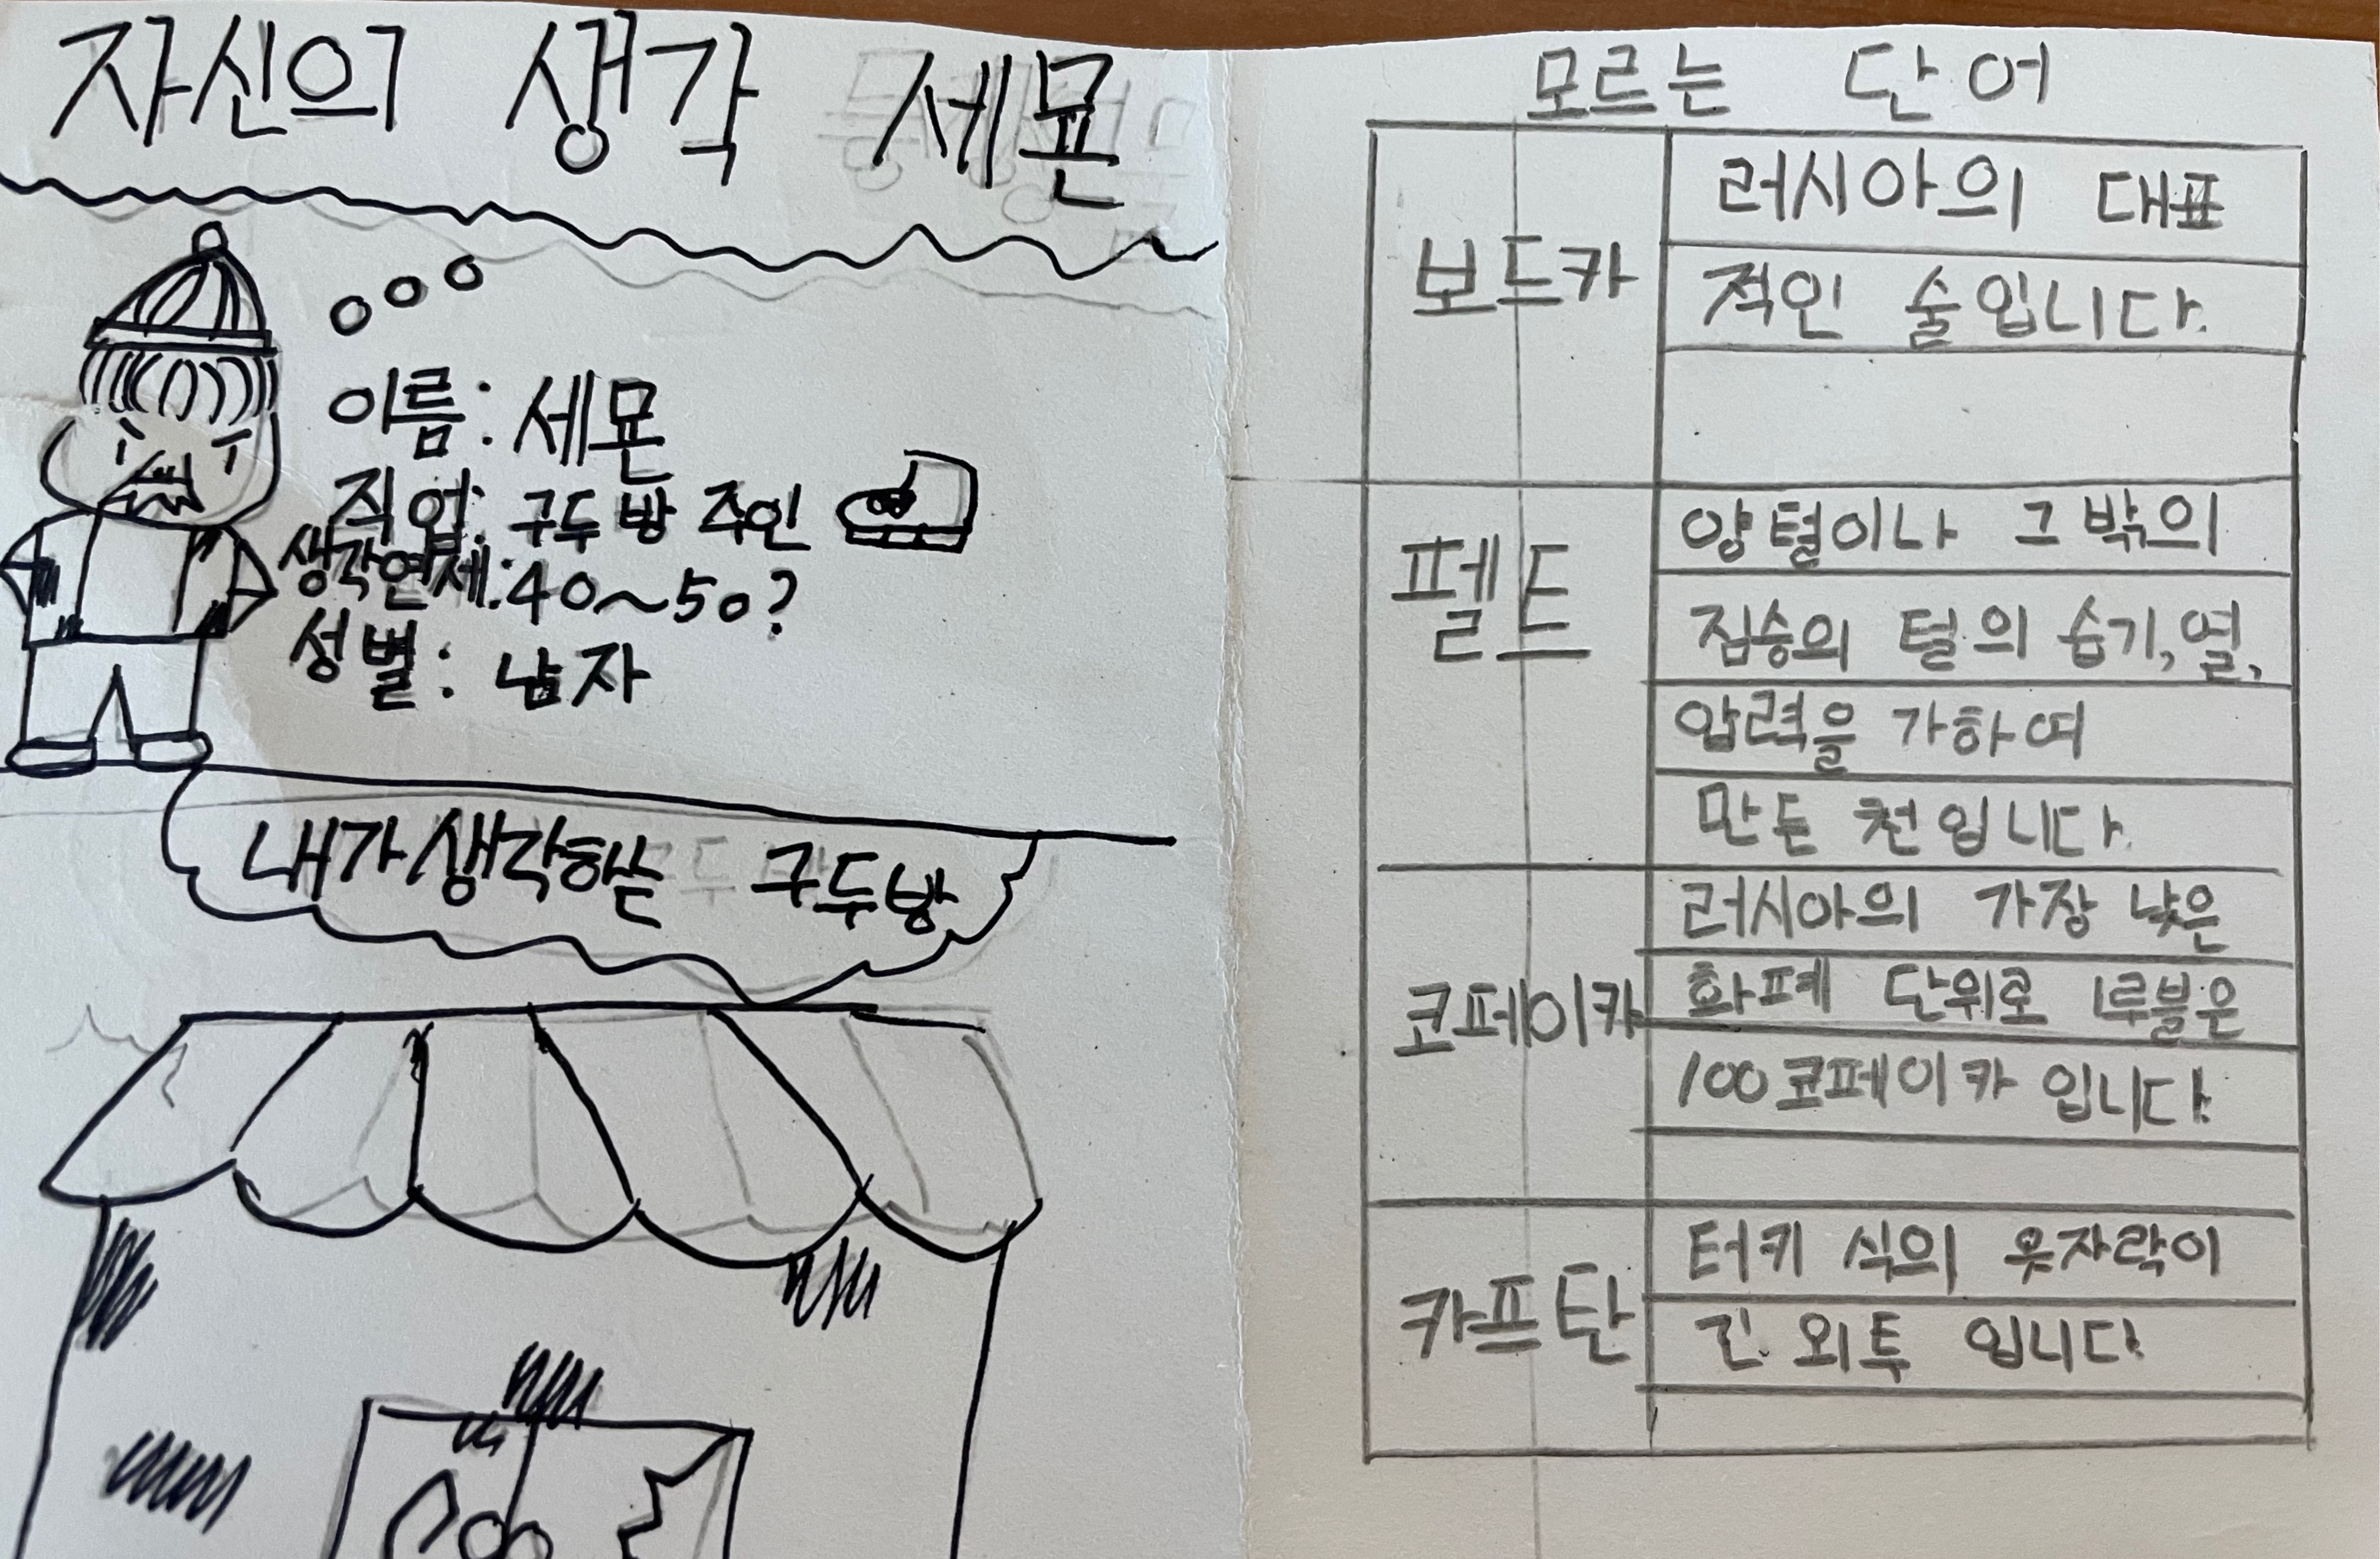 자신의 생각 세묜
이름: 세묜
직업: 구두방 주인
생각연세: 40~50?
성별: 남자
내가 생각하는 구두방
모르는 단어
보드카
러시아의 대표
적인 술입니다.
펠드
양털이나 그 밖의
짐승의 털의 습기, 열,
압력을 가하여
만든 천입니다.
코페이카
러시아의 가장 낮은
화폐 단위로 1루블은
100코페이카 입니다.
카프탄
터키 식의 옷자락이
긴 외투 입니다.